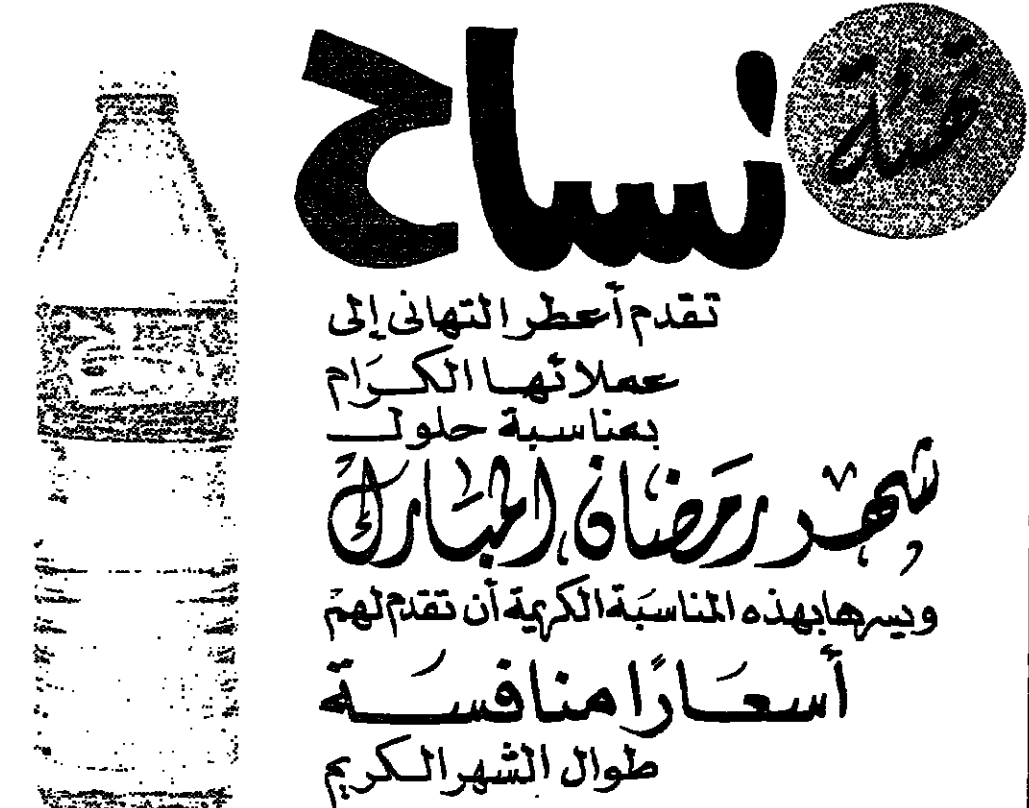 تهنئة
نساح
تقدم أعطر التهانى إلى
عملائها الكرام
بمناسبة حلول
شهر رمضان المبارك
ويسرها بهذه المناسبة الكريمة أن تقدم لهم
أسعارًا منافسة
طوال الشهر الكريم